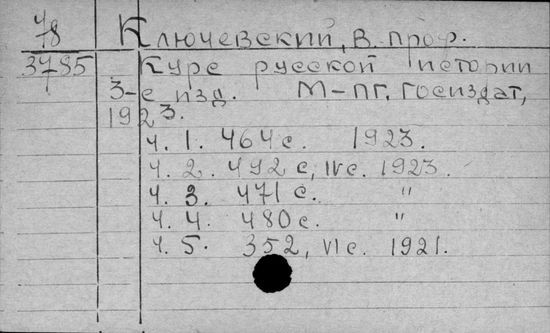 48 Ключевский, В. проф.
3785 Курс русской истории
3-е изд. М-ПГ, Госиздат,
1923.
ч. 1. 464 с. 1923.
ч. 2. 492 с, IV с. 1923.
ч. 3. 471 с. "
ч. 4. 480 с. "
ч. 5. 352, VI с. 1921.